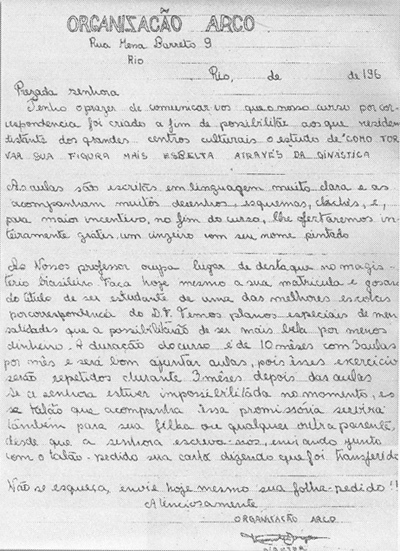 ORGANIZAÇÃO ARCO
Rua Mena Barreto 9
Rio
Rio, de de 196
Prezada senhora
Tenho o prazer de comunicar vos que o nosso curso por cor-
respondencia foi criado a fim de possibilitar aos que residem
distante dos grandes centros culturais o estudo de "COMO TOR
NAR SUA FIGURA MAIS ESBELTA ATRAVÉS DA GINÁSTICA
As aulas são escritas em linguagem muito clara e as
acompanham muitos desenhos, esquemas, clichés, e,
para maior incentivo, no fim do curso, lhe ofertaremos in-
teiramente gratis um cinzeiro com seu nome pintado
Nosso professor ocupa lugar de destaque no magis-
tério brasileiro. Faca hoje mesmo a sua matricula e gosara
do titulo de ser estudante de uma das melhores escolas
por correspondencia do D.F. Temos planos especiais de men-
salidades que a possibilitarão de ser mais bela por menos
dinheiro. A duração do curso é de 10 mêses com 3 aulas
por mês e será bom ajuntar aulas, pois êsses exercicio
serão repetidos durante 3 mêses depois das aulas
Se a senhora estiver impossibilitada no momento, es
se talão que acompanha essa promissória servira
também para sua filha ou qualquer outra parenta,
desde que a senhora escreva-nos, enviando junto
com o talão-pedido sua carta dizendo que foi transferida
Não se esqueça, envie hoje mesmo sua folha-pedido!!
Atenciosamente
ORGANIZAÇÃO ARCO